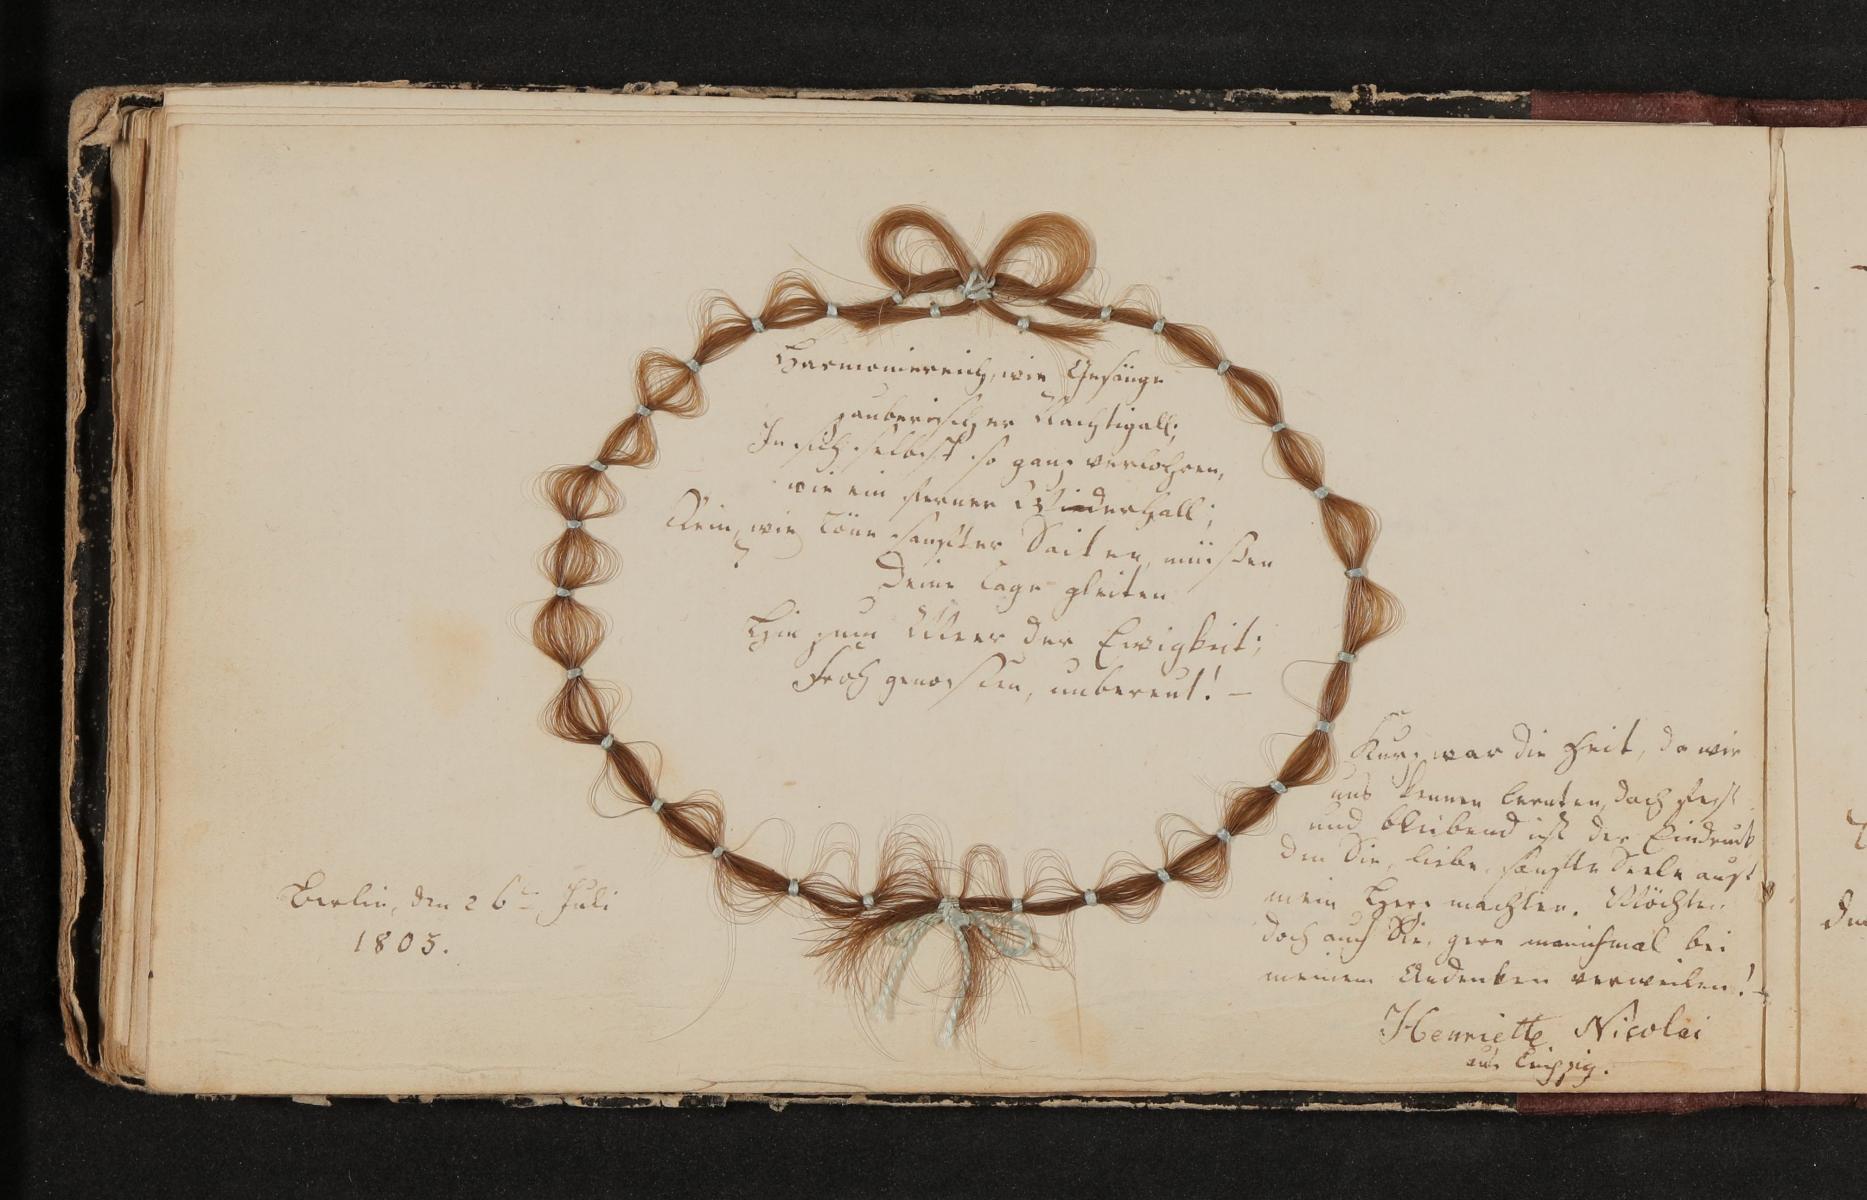 Harmoniereich, wie Gesänge
zauberischer Nachtigall;
In sich selbst so ganz verlohren,
wie ein ferner Wiederhall;
Rein, wie Töne sanfter Saiten, müißen
Deine Tage gleiten
Hin zum Meer der Ewigkeit;
Froh genoßen, unbereut! –
Kurz war die Zeit, da wir
uns kennen lernten, doch fest
und bleibend ist der Eindruck
den Sie, liebe, sanfte Seele auf
mein Herz machten. Möchten
doch auch Sie, gern manchmal bei
meinem Andenken verweilen! –
Henriette Nicolai
aus Leipzig.
Berlin, den 26ten Juli
1803.